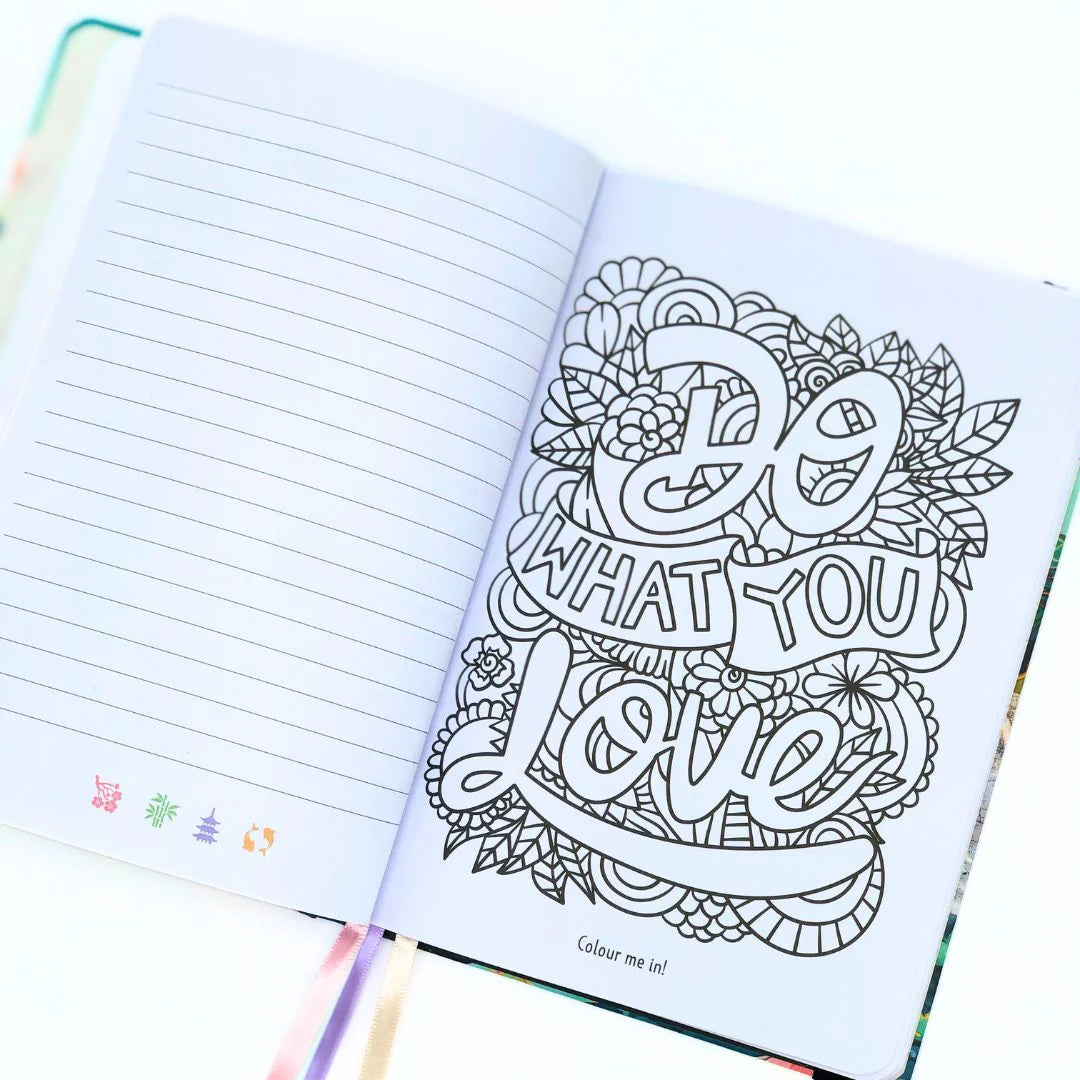 DO
WHAT YOU
Love
Colour me in!